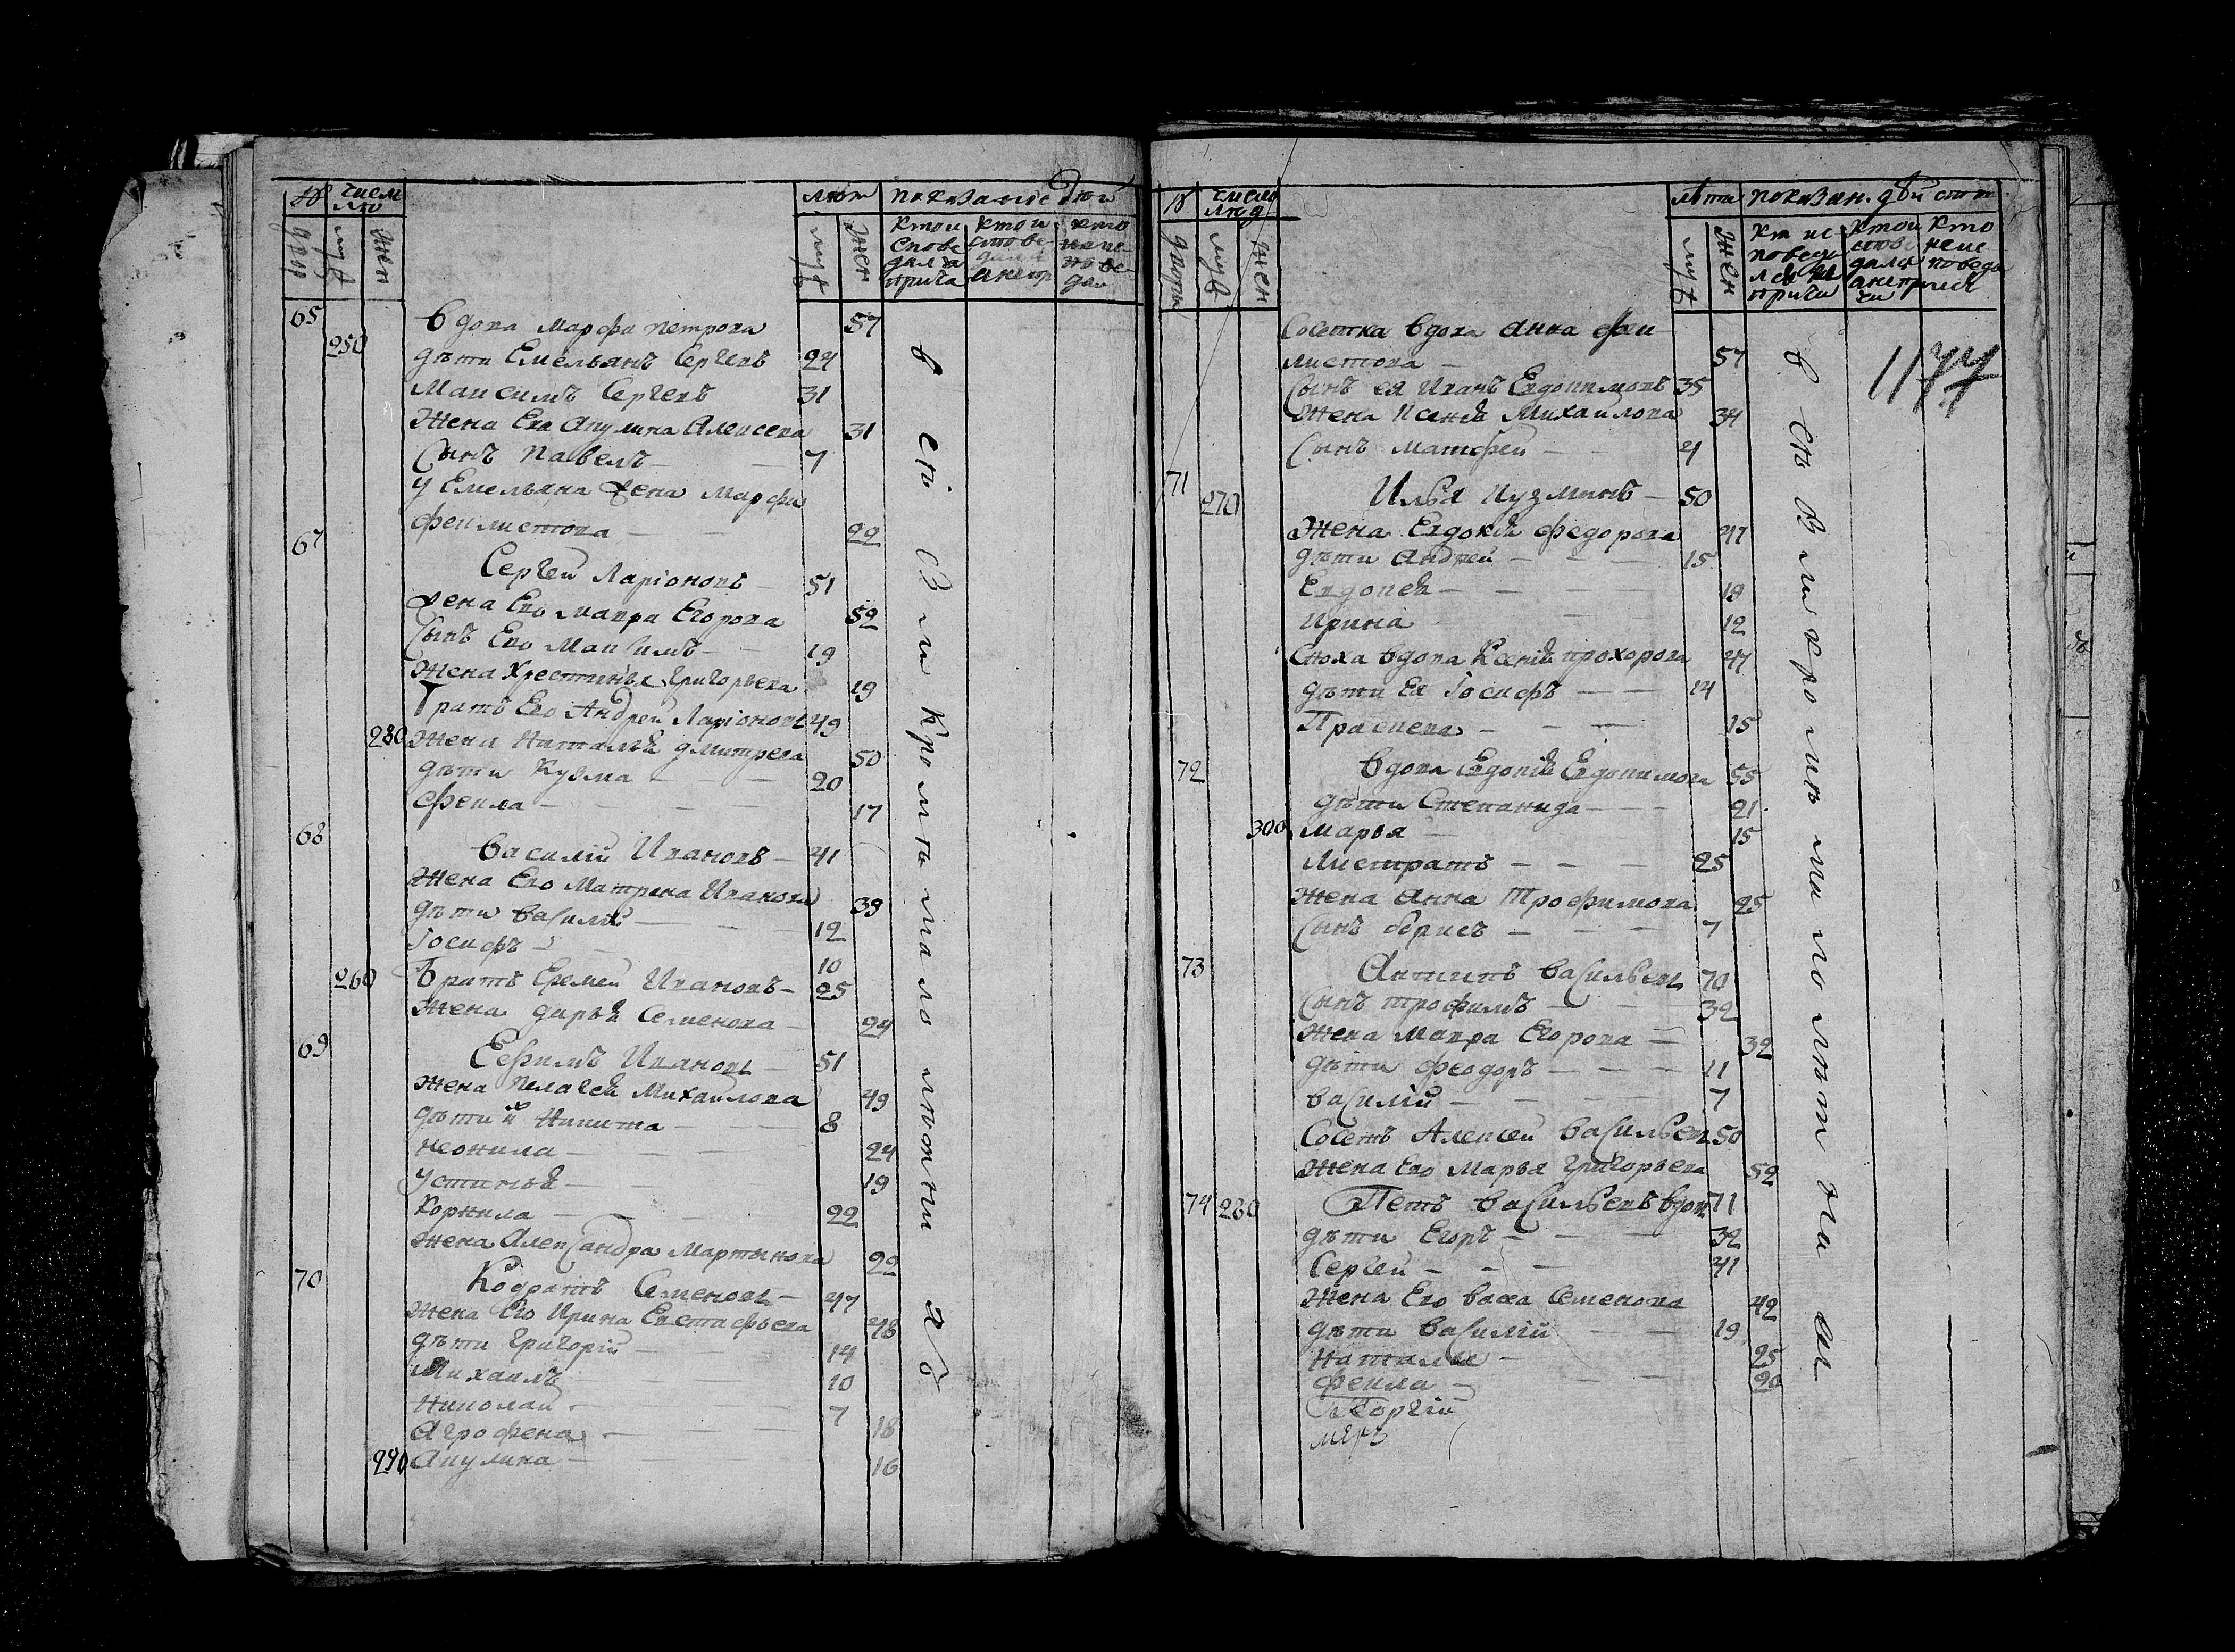 № числ лю
лѣт показание дѣй
двор муж жен
муж жен
кто и спове дал и прича
кто и спове дал а не пр
кто не ис по ве дал
65
250
вдова марфа петрова 57
дѣти Емельянъ Сергевъ 24
Максимъ Сергевъ 31
жена Его Акулина Алексева 31
Сынъ павелъ 7
у Емельяна жена марфа
феклистова 22
67
Сергеи Ларіоновъ 51
жена Его мавра Егорова 52
Сынъ Его Максимъ 19
жена Хрестинья Григорьева 19
Братъ Его Андреи Ларіоновъ 49
280 жена Наталья дмитрева 50
дѣти Кузма 20
фекла 17
68
василіи Ивановъ 41
жена Его Матрена Иванова 39
дѣти василіи 12
Іосифъ 10
260 братъ Еремеи Ивановъ 25
жена дарья Семенова 24
69
Ефимъ Ивановъ 51
жена пелагея Михаилова 49
дѣти Никита 8
неонила 24
устинья 19
Корнила 22
жена Александра Мартынова 22
70
Кодратъ Семеновъ 47
жена Его Ирина Евстафьева 48
дѣти Григоріи 14
Михаилъ 10
Николаи 7
Агрофена 18
290 Акулина 16
всѣ З м Кромѣ малолѣтних
№ число люд
лѣта показан. дѣйст
дворы муж жен
муж жен
кт ис поведа лся и причи
кто и спове дался а не при чи
кто не ис поведа лся
1177
Сосетка вдова анна фек
листова 57
Сынъ ея Иванъ Евдокимовъ 35
жена Ксенья Михаилова 34
Сынъ матфеи 4
71 270
Илья Кузминъ 50
жена Евдокия федорова 47
дѣти андреи 15
Евдокея 19
Ирина 12
Сноха вдова Ксенія прохорова 47
дѣти Ея Іосифъ 14
Прасковa 15
72
вдова Евдокія Евдокимова 55
дѣти Степанида 21
300 марья 15
листратъ 25
жена анна Трофимова 25
Сынъ борисъ 7
73
Антипъ васильевъ 70
Сынъ трофимъ 32
жена мавра Егорова 32
дѣти феодоръ 11
василіи 7
Сосетъ Алексеи васильевъ 50
жена Его марья Григорьева 52
74 280
Петъ васильевъ вдов 71
дѣти Егоръ 32
Сергеи 41
жена Его васа Семенова 42
дѣти василіи 19
Наталья 25
фекла 20
Георгіи